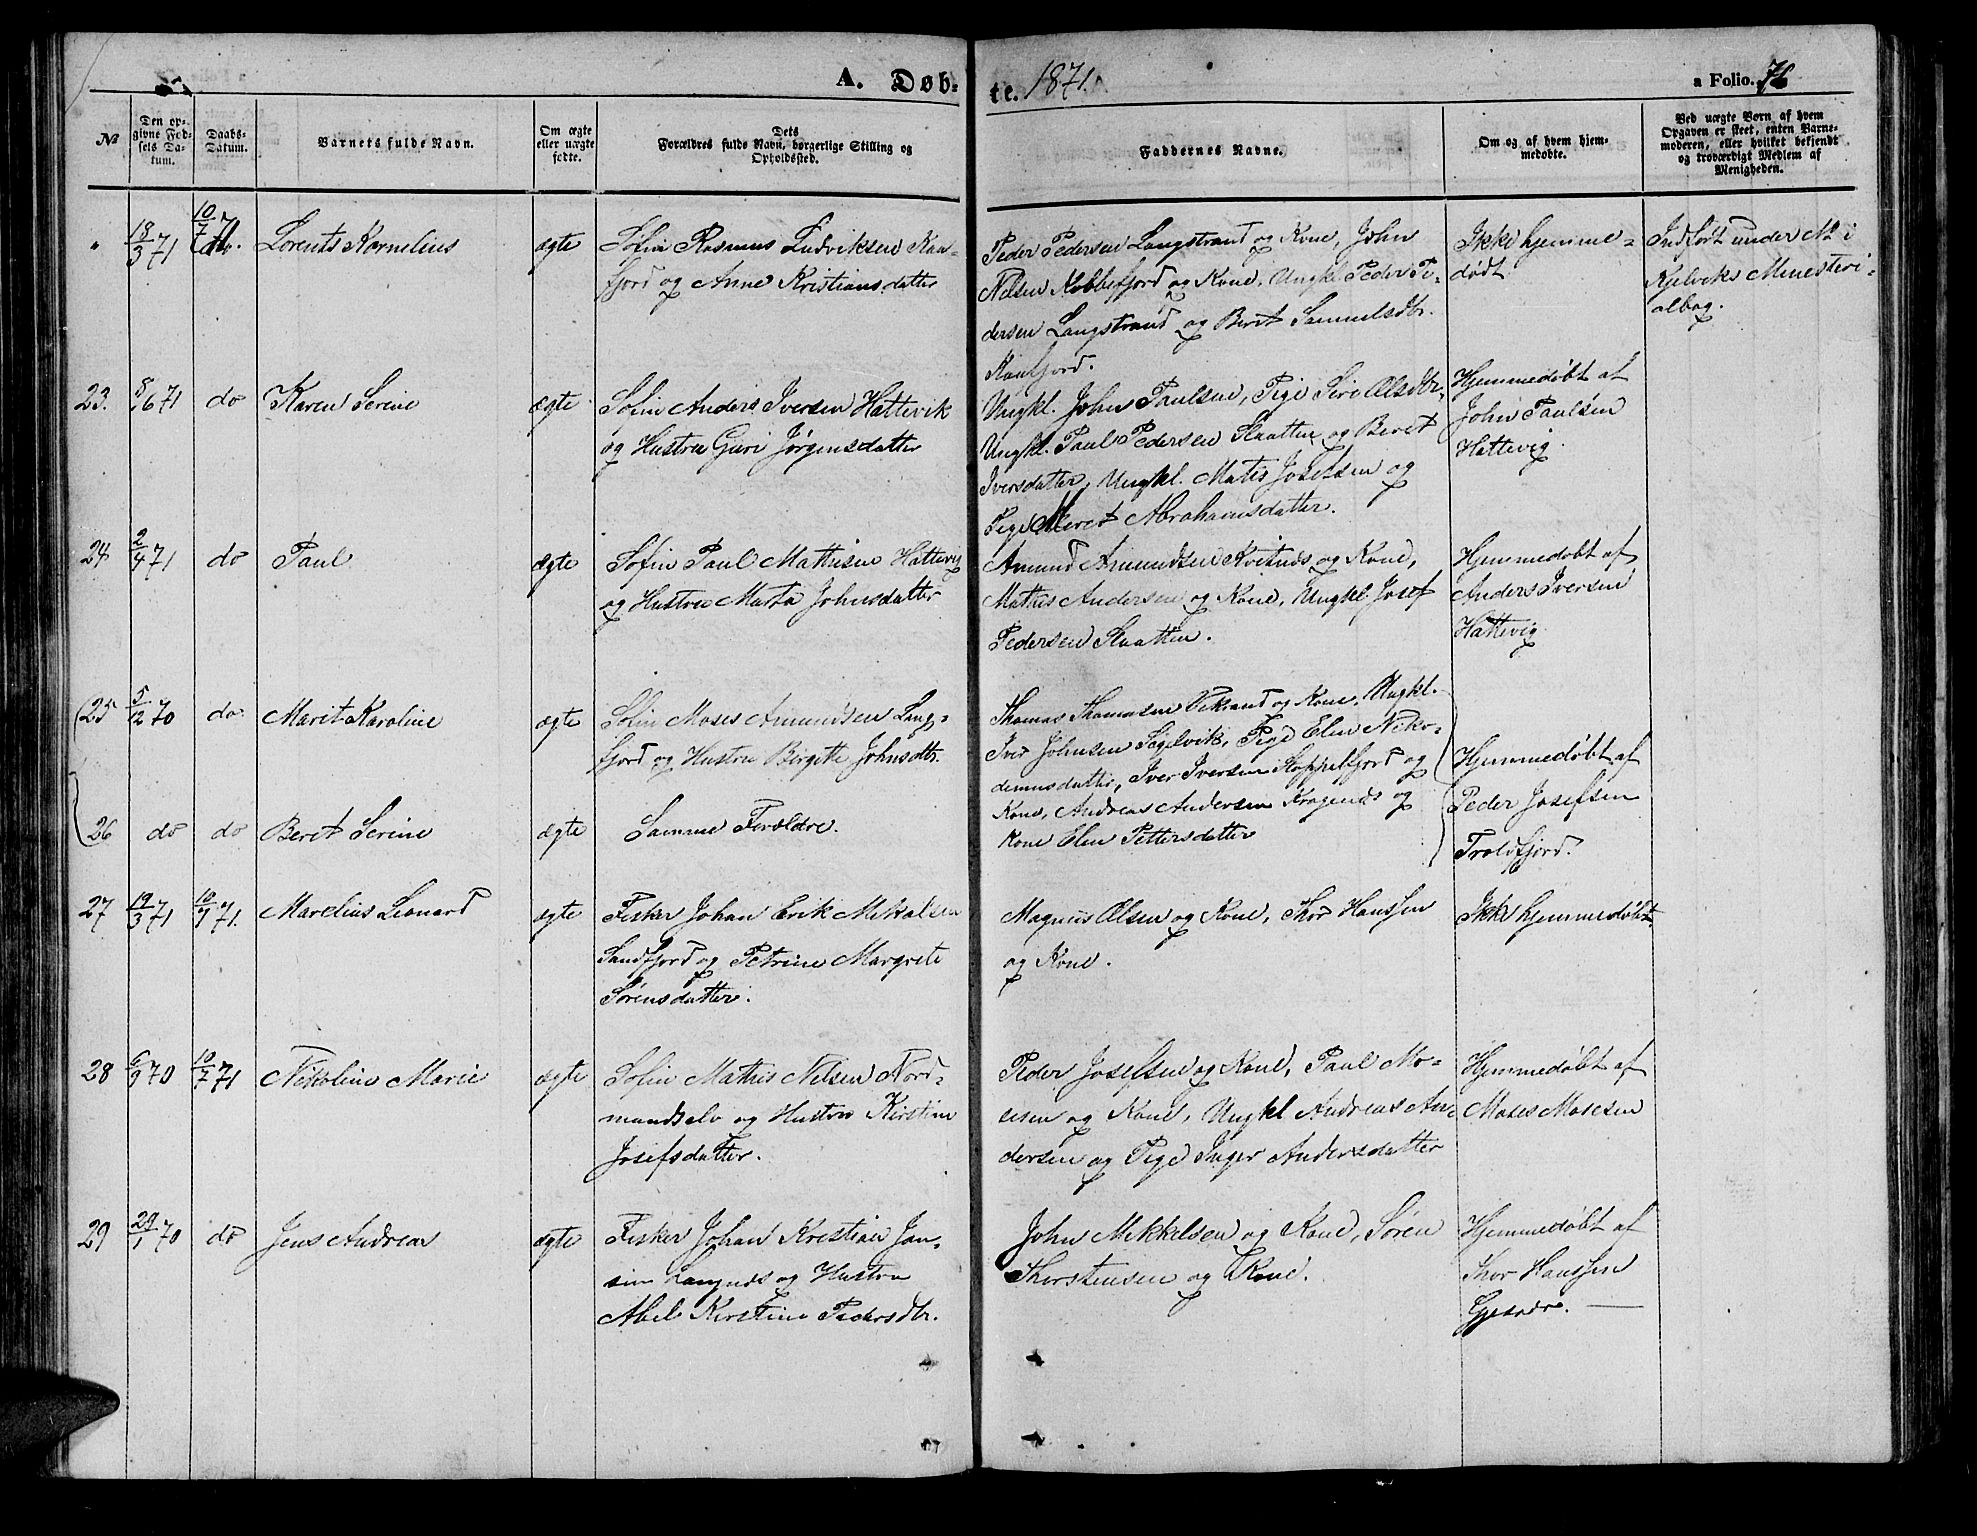 A. Døb-
te. 1871.
a Folio. 76
№
Den op-
givne Fød-
sels Da-
tum.
Daabs-
Datum.
Barnets fulde Navn.
Om ægte
eller uægte
fødte.
Dets
Forældres fulde Navn, borgerlige Stilling og
Opholdssted.
Faddernes Navne.
Om og af hvem hjem-
medøbte.
Ved uægte Børn af hvem
Opgaven er skeet, enten Barne-
moderen, eller hvilket bekjendt
og troværdigt Medlem af
Menigheden.
"
18/3 71
10/7 71.
Lorents Kornelius
ægte
Sofin Rasmus Ludviksen Kaa-
fjord og Anne Kristiansdatter
Peder Pedersen Langstrand og Kone, John
Nelsen Kobbefjord og Kone, Ungkl Peder Pe-
dersen Langstrand og Beret Samuelsdtr.
Kaafjord.
Ikke hjemme-
døbt
Indført under № i
Kjelviks Ministeri-
albog.
23.
8/6 71
do
Karen Serine
ægte
Sofin Anders Iversen Hattevik
og Hustru Guri Jørgensdatter
Ungkl. John Paulsen, Pige Siri Olsdtr,
Ungkl. Paul Pedersen Slaatten og Beret
Iversdatter, Ungkl. Matis Josefsen og
Pige Meret Abrahamsdatter.
Hjemmedøbt af
John Paulsen
Hattevig.
24
2/4 71
do
Paul
ægte
Sofin Paul Mathisen Hattevig
og Hustru Marta Johnsdatter
Amund Amundsen Kvitnæs og Kone,
Mathis Andersen og Kone, Ungkl Josef
Pedersen Slaatten.
Hjemmedøbt af
Anders Iversen
Hattevig.
25
5/12 70
do
Marit Karoline
ægte
Sofin Moses Amundsen Lang-
fjord og Hustru Birgitte Johnsdtr.
Thomas Thomasen Vikran og Kone, Ungkl.
Iver Johnsen Sigelvik, Pige Elen Niko-
demusdatter, Iver Iversen Skoppelfjord og
Kone, Andreas Andersen Kragenæs og
Kone Elen Pettersdatter
Hjemmedøbt af
Peder Josefsen
Troldfjord.
26
do
do
Beret Serine
ægte
Samme Forældre.
27
19/3 71
10/7 71.
Marelius Leonard
ægte
Fisker Johan Erik Mikalsen
Sandfjord og Petrine Margrete
Sørensdatter.
Magnus Olsen og Kone, Thor Hanssen
og Kone.
Ikke hjemmedøbt.
28
6/9 70
10/7 71
Nikoline Marie
ægte
Sofin Mathis Nilsen Nord-
mandselv og Hustru Kirstine
Josefsdatter.
Peder Josefsen og Kone, Paul Mo-
sesen og Kone, Ungkl Andreas An-
dersen og Pige Inger Andersdatter
Hjemmedøbt af
Moses Mosesen
29
29/1 70
do
Jens Andreas
ægte
Fisker Johan Kristian Jan-
sen Langnæs og Hustru
Abel Kirstine Pedersdtr.
John Mikkelsen og Kone, Søren
Thorstensen og Kone.
Hjemmedøbt af
Thor Hanssen
Gjesvær.